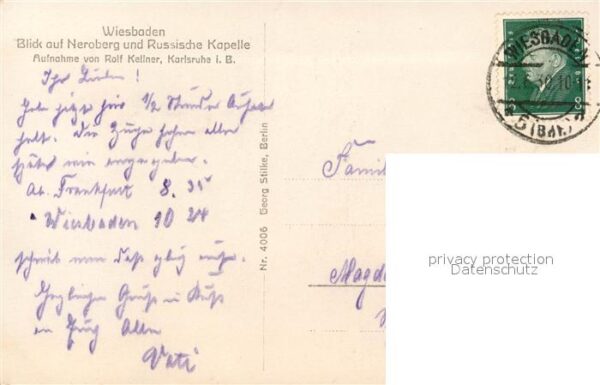 Wiesbaden
Blick auf Neroberg und Russische Kapelle
Aufnahme von Rolf Kellner, Karlsruhe i. B.
Ihr Lieben!
Habe jetzt hier 1/2 Stunde Aufent
halt. Die Züge fahren alle
später wie angegeben.
Ab. Frankfurt 8.35
" Wiesbaden 10 24
schreibt man daß
Herzlichen Gruß u Kuß
an Euch Allen
Vati
Nr. 4006 Georg Stilke, Berlin
WIESBADEN
30.10
5 (BHF.)
Famil
Magde
privacy protection
Datenschutz